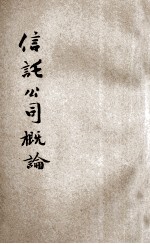 信託公司概論